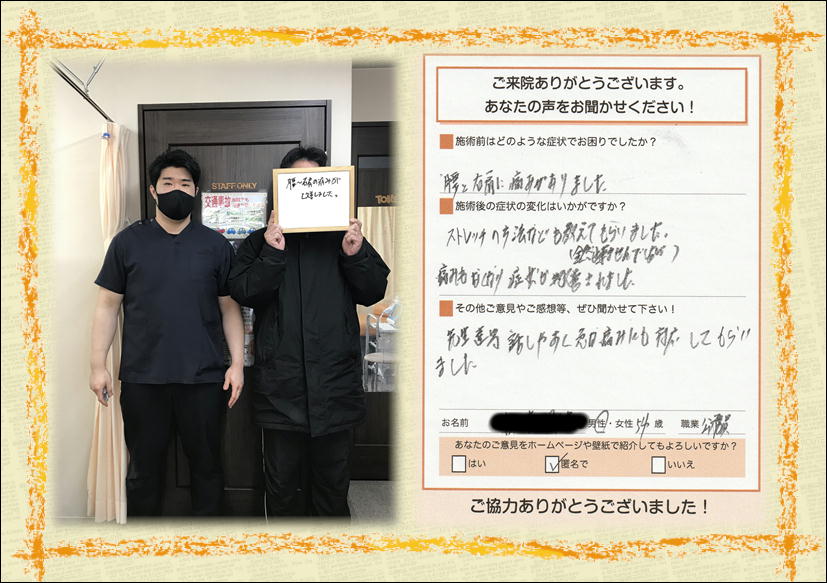 STAFF ONLY
交通事故
腰〜右肩の痛みが
しました。
ご来院ありがとうございます。
あなたの声をお聞かせください！
施術前はどのような症状でお困りでしたか？
腰と右肩に痛みがありました
施術後の症状の変化はいかがですか？
ストレッチの方法なども教えてもらいました。
痛みも 症状が 改善されました
その他ご意見やご感想等、ぜひ聞かせて下さい！
話しやすく 痛みにも 対応 してもらい
ました
お名前 男性・女性 歳 職業 公務員
あなたのご意見をホームページや壁紙で紹介してもよろしいですか？
はい 匿名で いいえ
ご協力ありがとうございました！